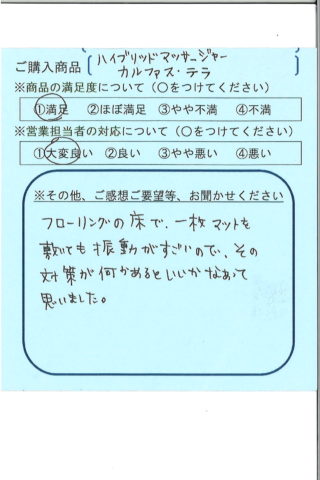 ご購入商品 ハイブリッドマッサージャー
カルファス・テラ
※商品の満足度について(○をつけてください)
①満足 ②ほぼ満足 ③やや不満 ④不満
※営業担当者の対応について(○をつけてください)
①大変良い ②良い ③やや悪い ④悪い
※その他、ご感想ご要望等、お聞かせください
フローリングの床で、一枚マットを
敷いても振動がすごいので、その
対策が何かあるといいかなあって
思いました。